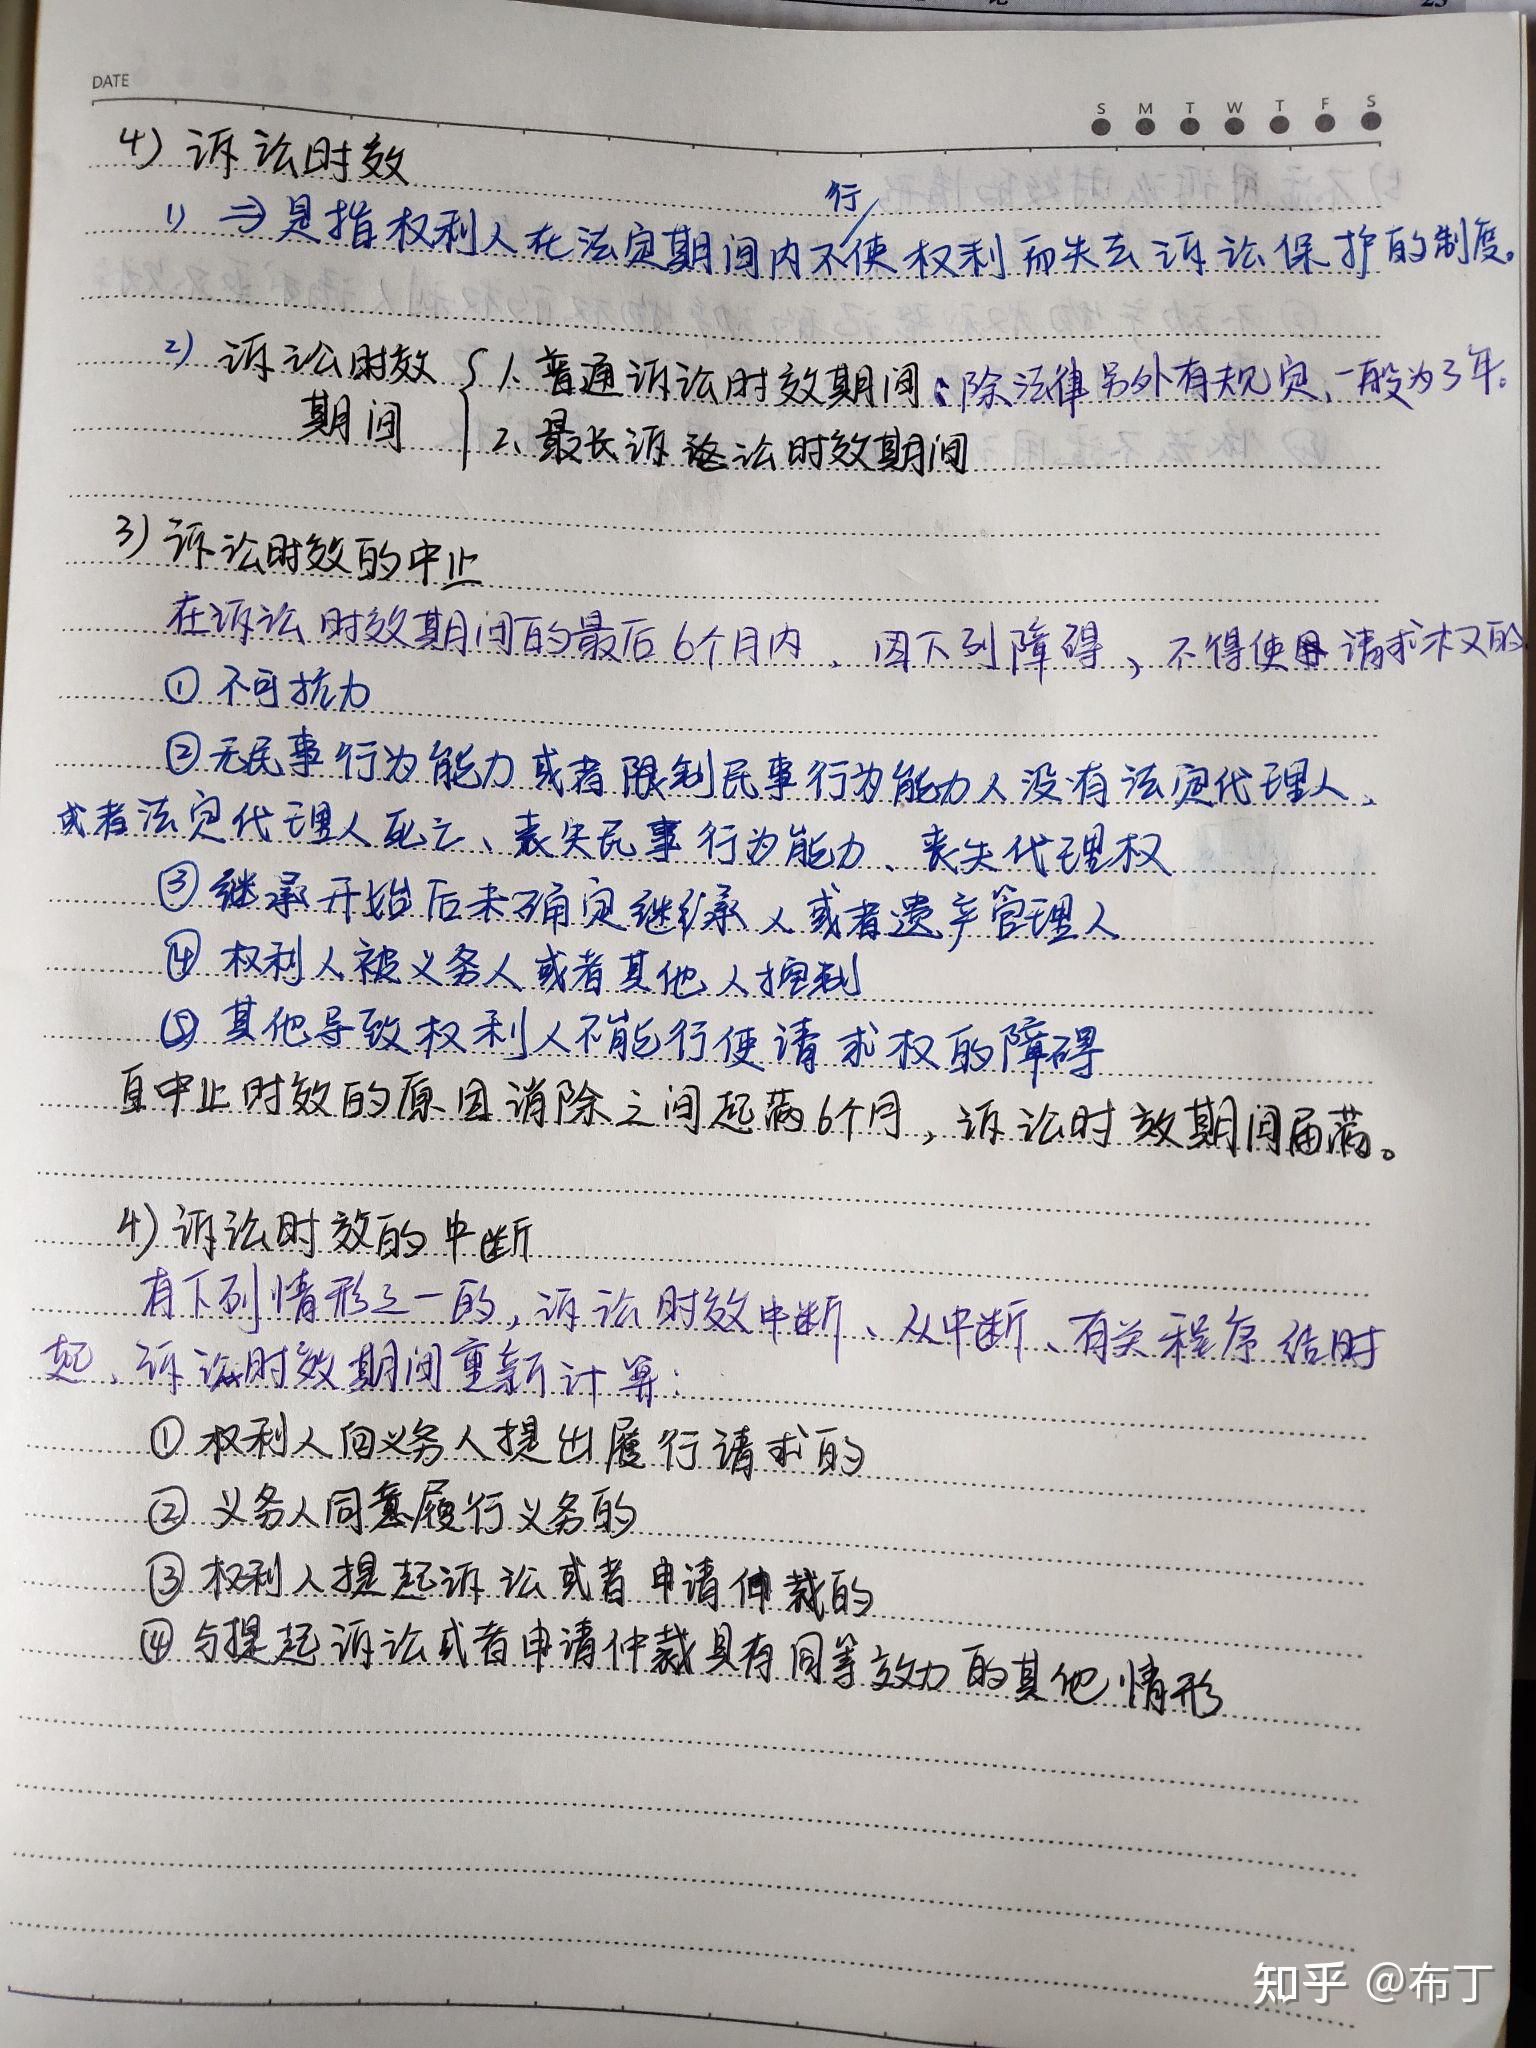 DATE
S M T W T F S
4) 诉讼时效
1) ⇒ 是指权利人在法定期间内不行使权利而失去诉讼保护的制度。
2) 诉讼时效期间 { 1、普通诉讼时效期间：除法律另外有规定、一般为3年。
2、最长诉讼时效期间
3) 诉讼时效的中止
在诉讼时效期间的最后6个月内、因下列障碍、不得使用请求权的
① 不可抗力
② 无民事行为能力或者限制民事行为能力人没有法定代理人、
或者法定代理人死亡、丧失民事行为能力、丧失代理权
③ 继承开始后未确定继承人或者遗产管理人
④ 权利人被义务人或者其他人控制
⑤ 其他导致权利人不能行使请求权的障碍
自中止时效的原因消除之间起满6个月，诉讼时效期间届满。
4) 诉讼时效的中断
有下列情形之一的，诉讼时效中断、从中断、有关程序结时
起、诉讼时效期间重新计算：
① 权利人向义务人提出履行请求的
② 义务人同意履行义务的
③ 权利人提起诉讼或者申请仲裁的
④ 与提起诉讼或者申请仲裁具有同等效力的其他情形
知乎 @布丁